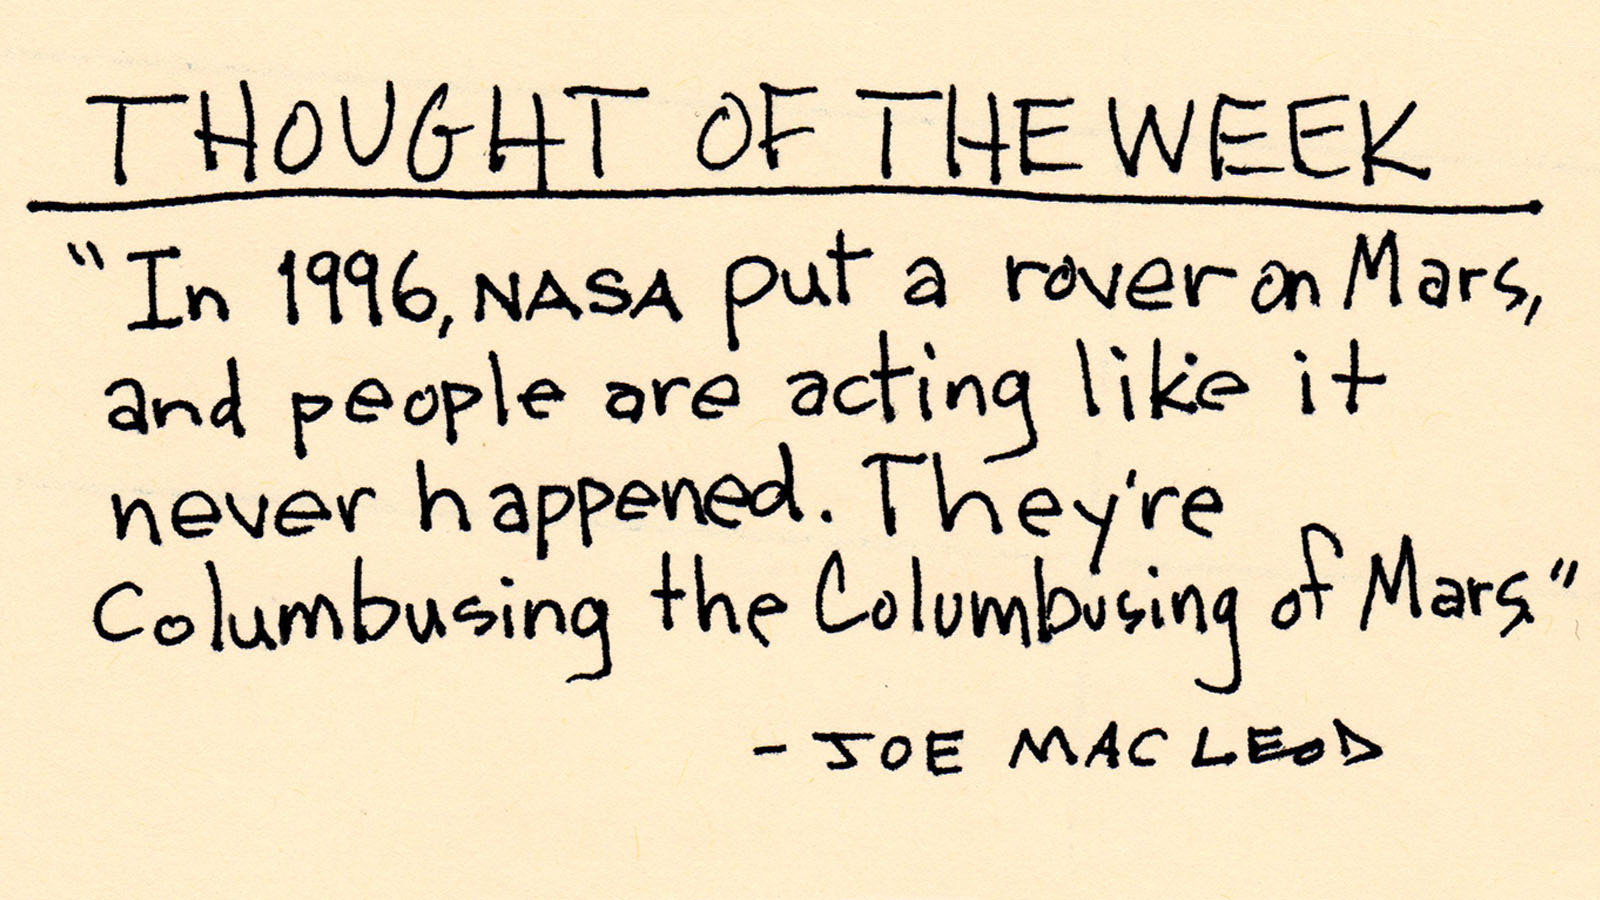 THOUGHT OF THE WEEK
"In 1996, NASA put a rover on Mars,
and people are acting like it
never happened. They're
Columbusing the Columbusing of Mars."
- JOE MACLEOD